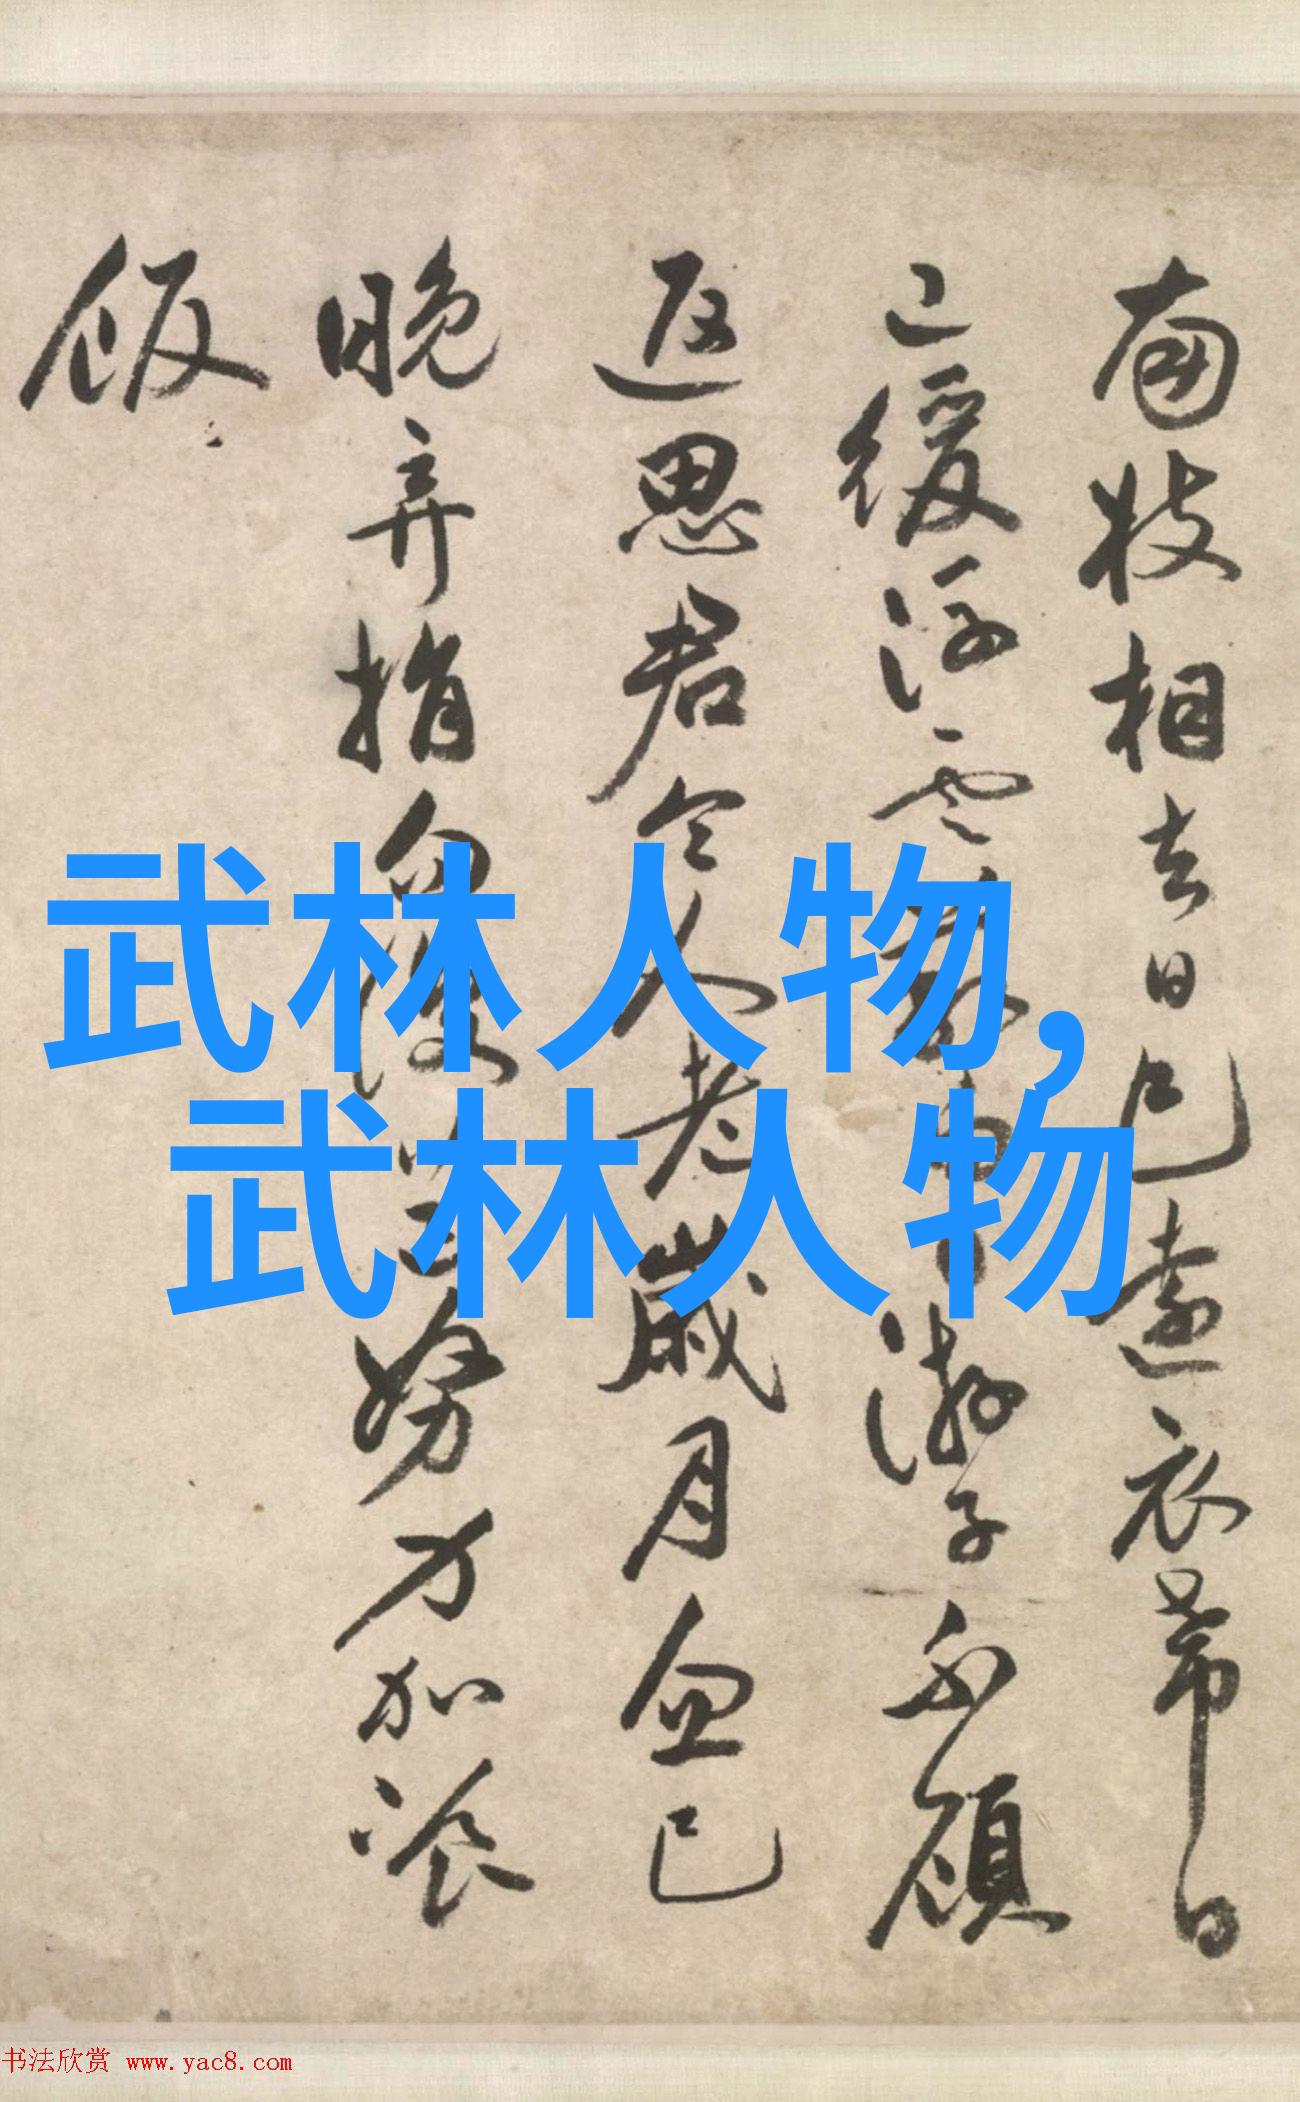 南枝相去日已遠衣帶日
已緩浮雲蔽白日遊子不顧
返思君令人老歲月忽已
晚棄捐勿復道努力加飡
飯
武林人物,
武林人物
书法欣赏 www.yac8.com